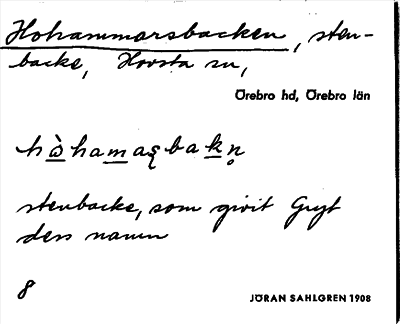 Hohammarsbacken, sten-
backe, Hovsta sn,
Örebro hd, Örebro län
hὼhamaʂbakn̥
stenbacke, som givit Gryt
dess namn
8
JÖRAN SAHLGREN 1908